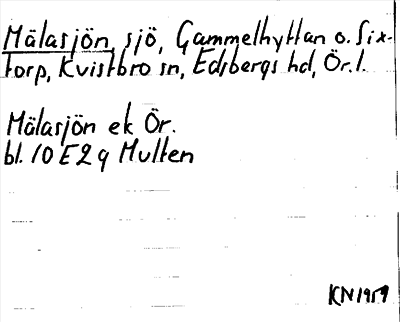 Mälasjön, sjö, Gammelhyttan o. Six-
torp, Kvistbro sn, Edsbergs hd, Ör. l.
Mälasjön ek Ör.
bl. 10 E 2 g Multen
KN 1959